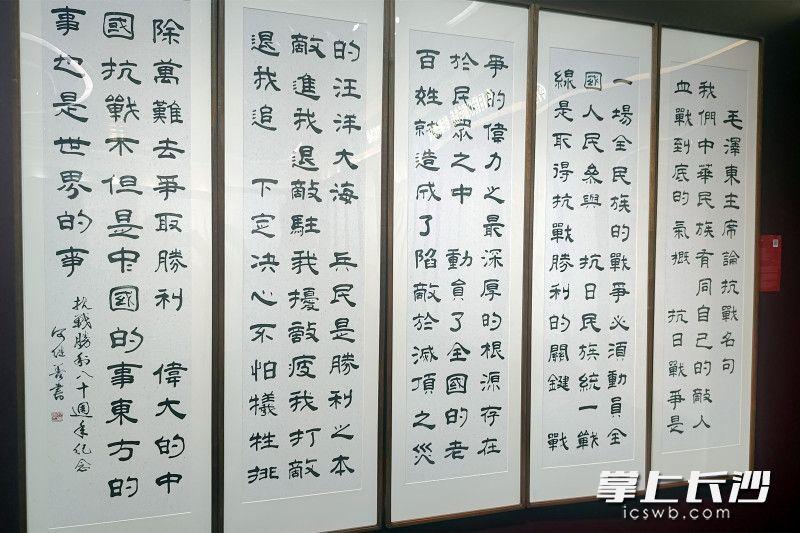 毛澤東主席論抗戰名句
我們中華民族有同自己的敵人
血戰到底的氣概 抗日戰爭是
一場全民族的戰爭必須動員全
國人民參與 抗日民族統一戰
線是取得抗戰勝利的關鍵 戰
爭的偉力之最深厚的根源存在
於民眾之中 動員了全國的老
百姓就造成了陷敵於滅頂之災
的汪洋大海 兵民是勝利之本
敵進我退敵駐我擾敵疲我打敵
退我追 下定决心不怕犧牲排
除萬難去爭取勝利 偉大的中
國抗戰不但是中國的事東方的
事也是世界的事
抗戰勝利八十週年紀念
何继善書
掌上长沙
icswb.com